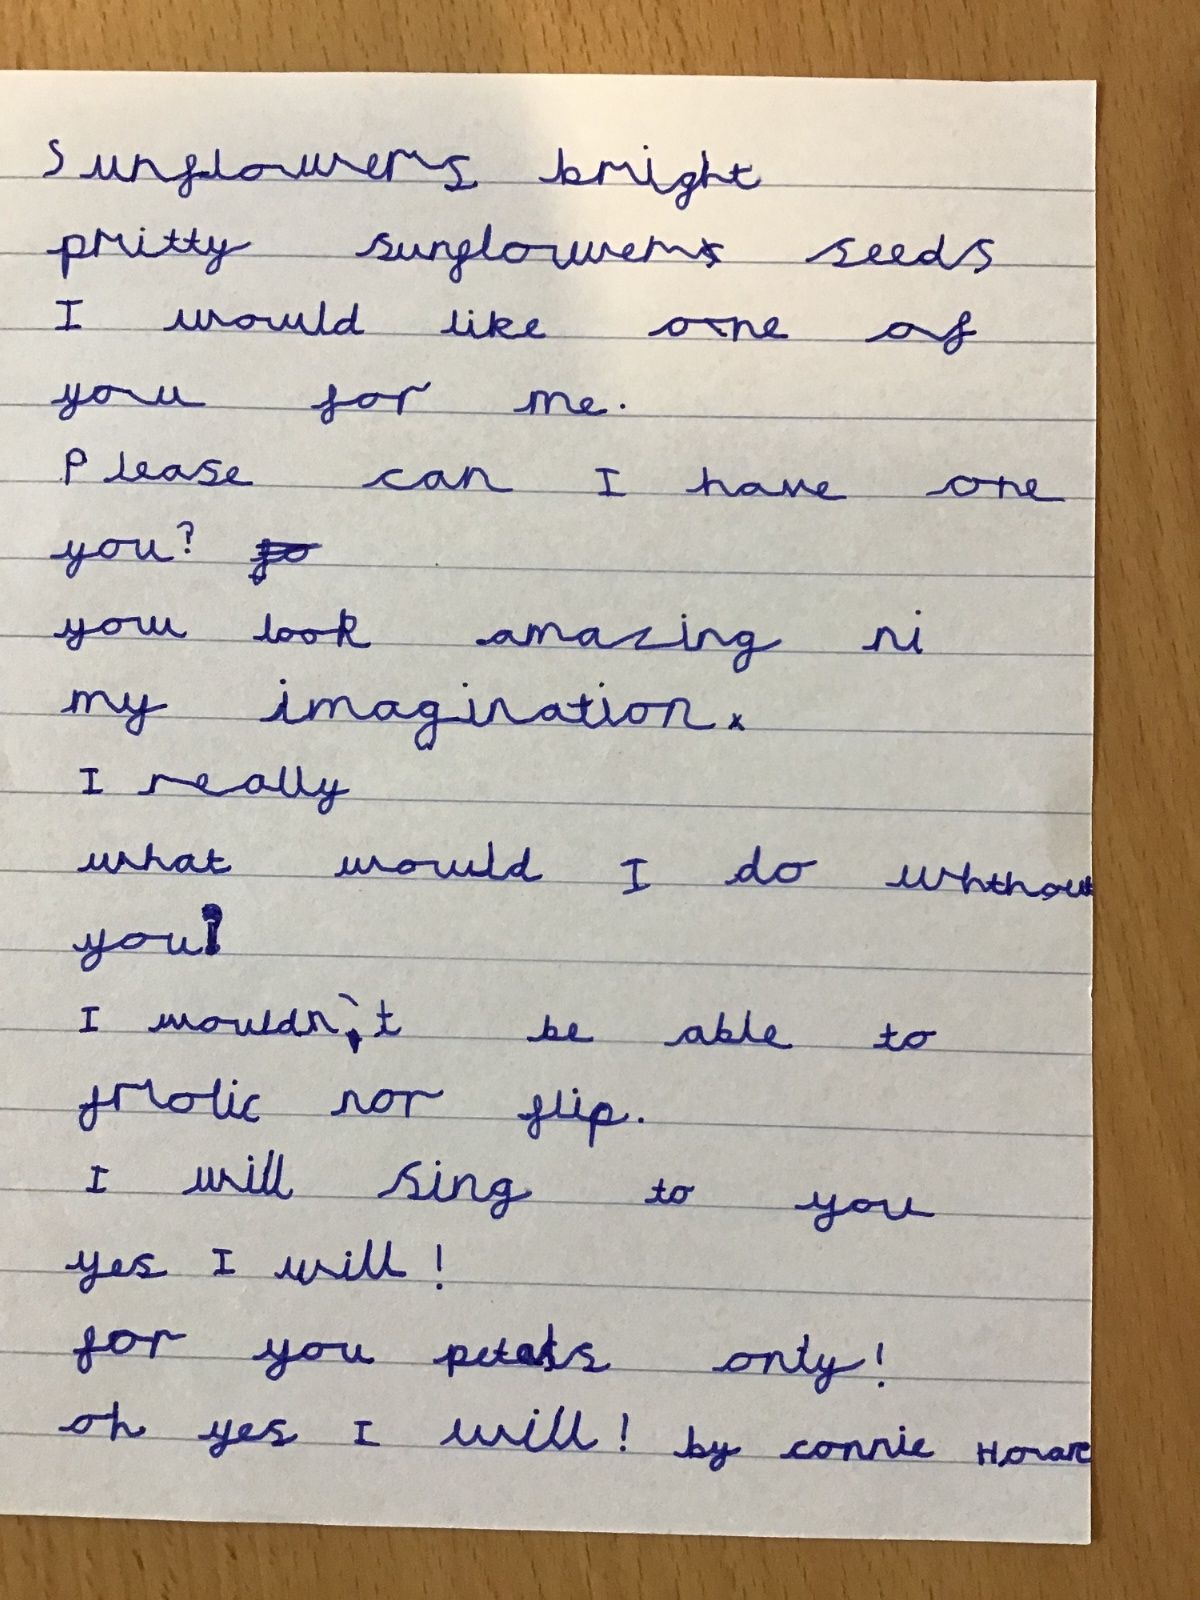 Sunflowers bright
pritty sunflowers seeds
I would like one of
you for me.
Please can I have one
you?
you look amazing ni
my imagination.
I really
what would I do whthout
you!
I wouldn't be able to
frolic nor flip.
I will sing to you
yes I will!
for you petals only!
oh yes I will! by connie